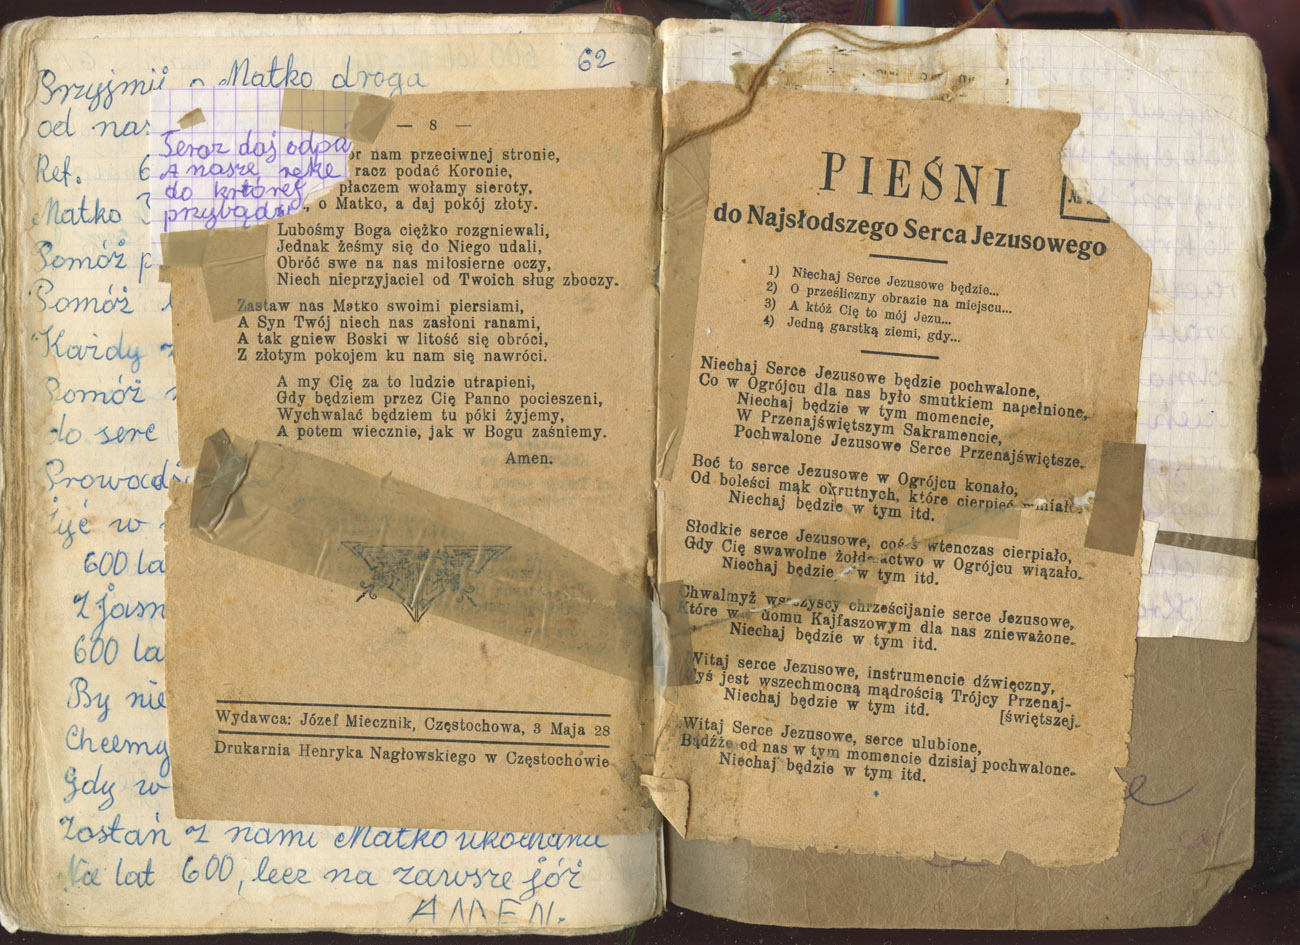 62
Przyjmij o Matko droga
od nas
Ref. 6
Matko
Pomóż p
Pomóż
Każdy z
Pomóż
do serc
Prowadź
żyć w
600 la
z jasn
600 la
By nie
Chcemy
Gdy w
Zostań z nami Matko ukochana
Na lat 600, lecz na zawsze jóż
AMEN.
Teraz daj odpo
A nasze ręke
do której
przybądź
— 8 —
nam przeciwnej stronie,
racz podać Koronie,
płaczem wołamy sieroty,
o Matko, a daj pokój złoty.
Lubośmy Boga ciężko rozgniewali,
Jednak żeśmy się do Niego udali,
Obróć swe na nas miłosierne oczy,
Niech nieprzyjaciel od Twoich sług zboczy.
Zastaw nas Matko swoimi piersiami,
A Syn Twój niech nas zasłoni ranami,
A tak gniew Boski w litość się obróci,
Z złotym pokojem ku nam się nawróci.
A my Cię za to ludzie utrapieni,
Gdy będziem przez Cię Panno pocieszeni,
Wychwalać będziem tu póki żyjemy,
A potem wiecznie, jak w Bogu zaśniemy.
Amen.
Wydawca: Józef Miecznik, Częstochowa, 3 Maja 28
Drukarnia Henryka Nagłowskiego w Częstochowie
PIEŚNI
№
do Najsłodszego Serca Jezusowego
1) Niechaj Serce Jezusowe będzie...
2) O prześliczny obrazie na miejscu...
3) A któż Cię to mój Jezu...
4) Jedną garstką ziemi, gdy...
Niechaj Serce Jezusowe będzie pochwalone,
Co w Ogrójcu dla nas było smutkiem napełnione,
Niechaj będzie w tym momencie,
W Przenajświętszym Sakramencie,
Pochwalone Jezusowe Serce Przenajświętsze.
Boć to serce Jezusowe w Ogrójcu konało,
Od boleści mąk okrutnych, które cierpieć miało.
Niechaj będzie w tym itd.
Słodkie serce Jezusowe, coś wtenczas cierpiało,
Gdy Cię swawolne żołdactwo w Ogrójcu wiązało.
Niechaj będzie w tym itd.
Chwalmyż wszyscy chrześcijanie serce Jezusowe,
Które w domu Kajfaszowym dla nas znieważone.
Niechaj będzie w tym itd.
Witaj serce Jezusowe, instrumencie dźwięczny,
Tyś jest wszechmocną mądrością Trójcy Przenaj-
Niechaj będzie w tym itd. [świętszej.
Witaj Serce Jezusowe, serce ulubione,
Bądźże od nas w tym momencie dzisiaj pochwalone.
Niechaj będzie w tym itd.